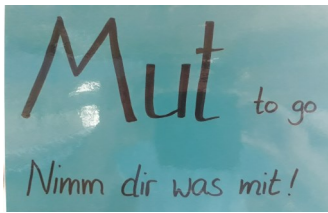 Mut to go
Nimm dir was mit!